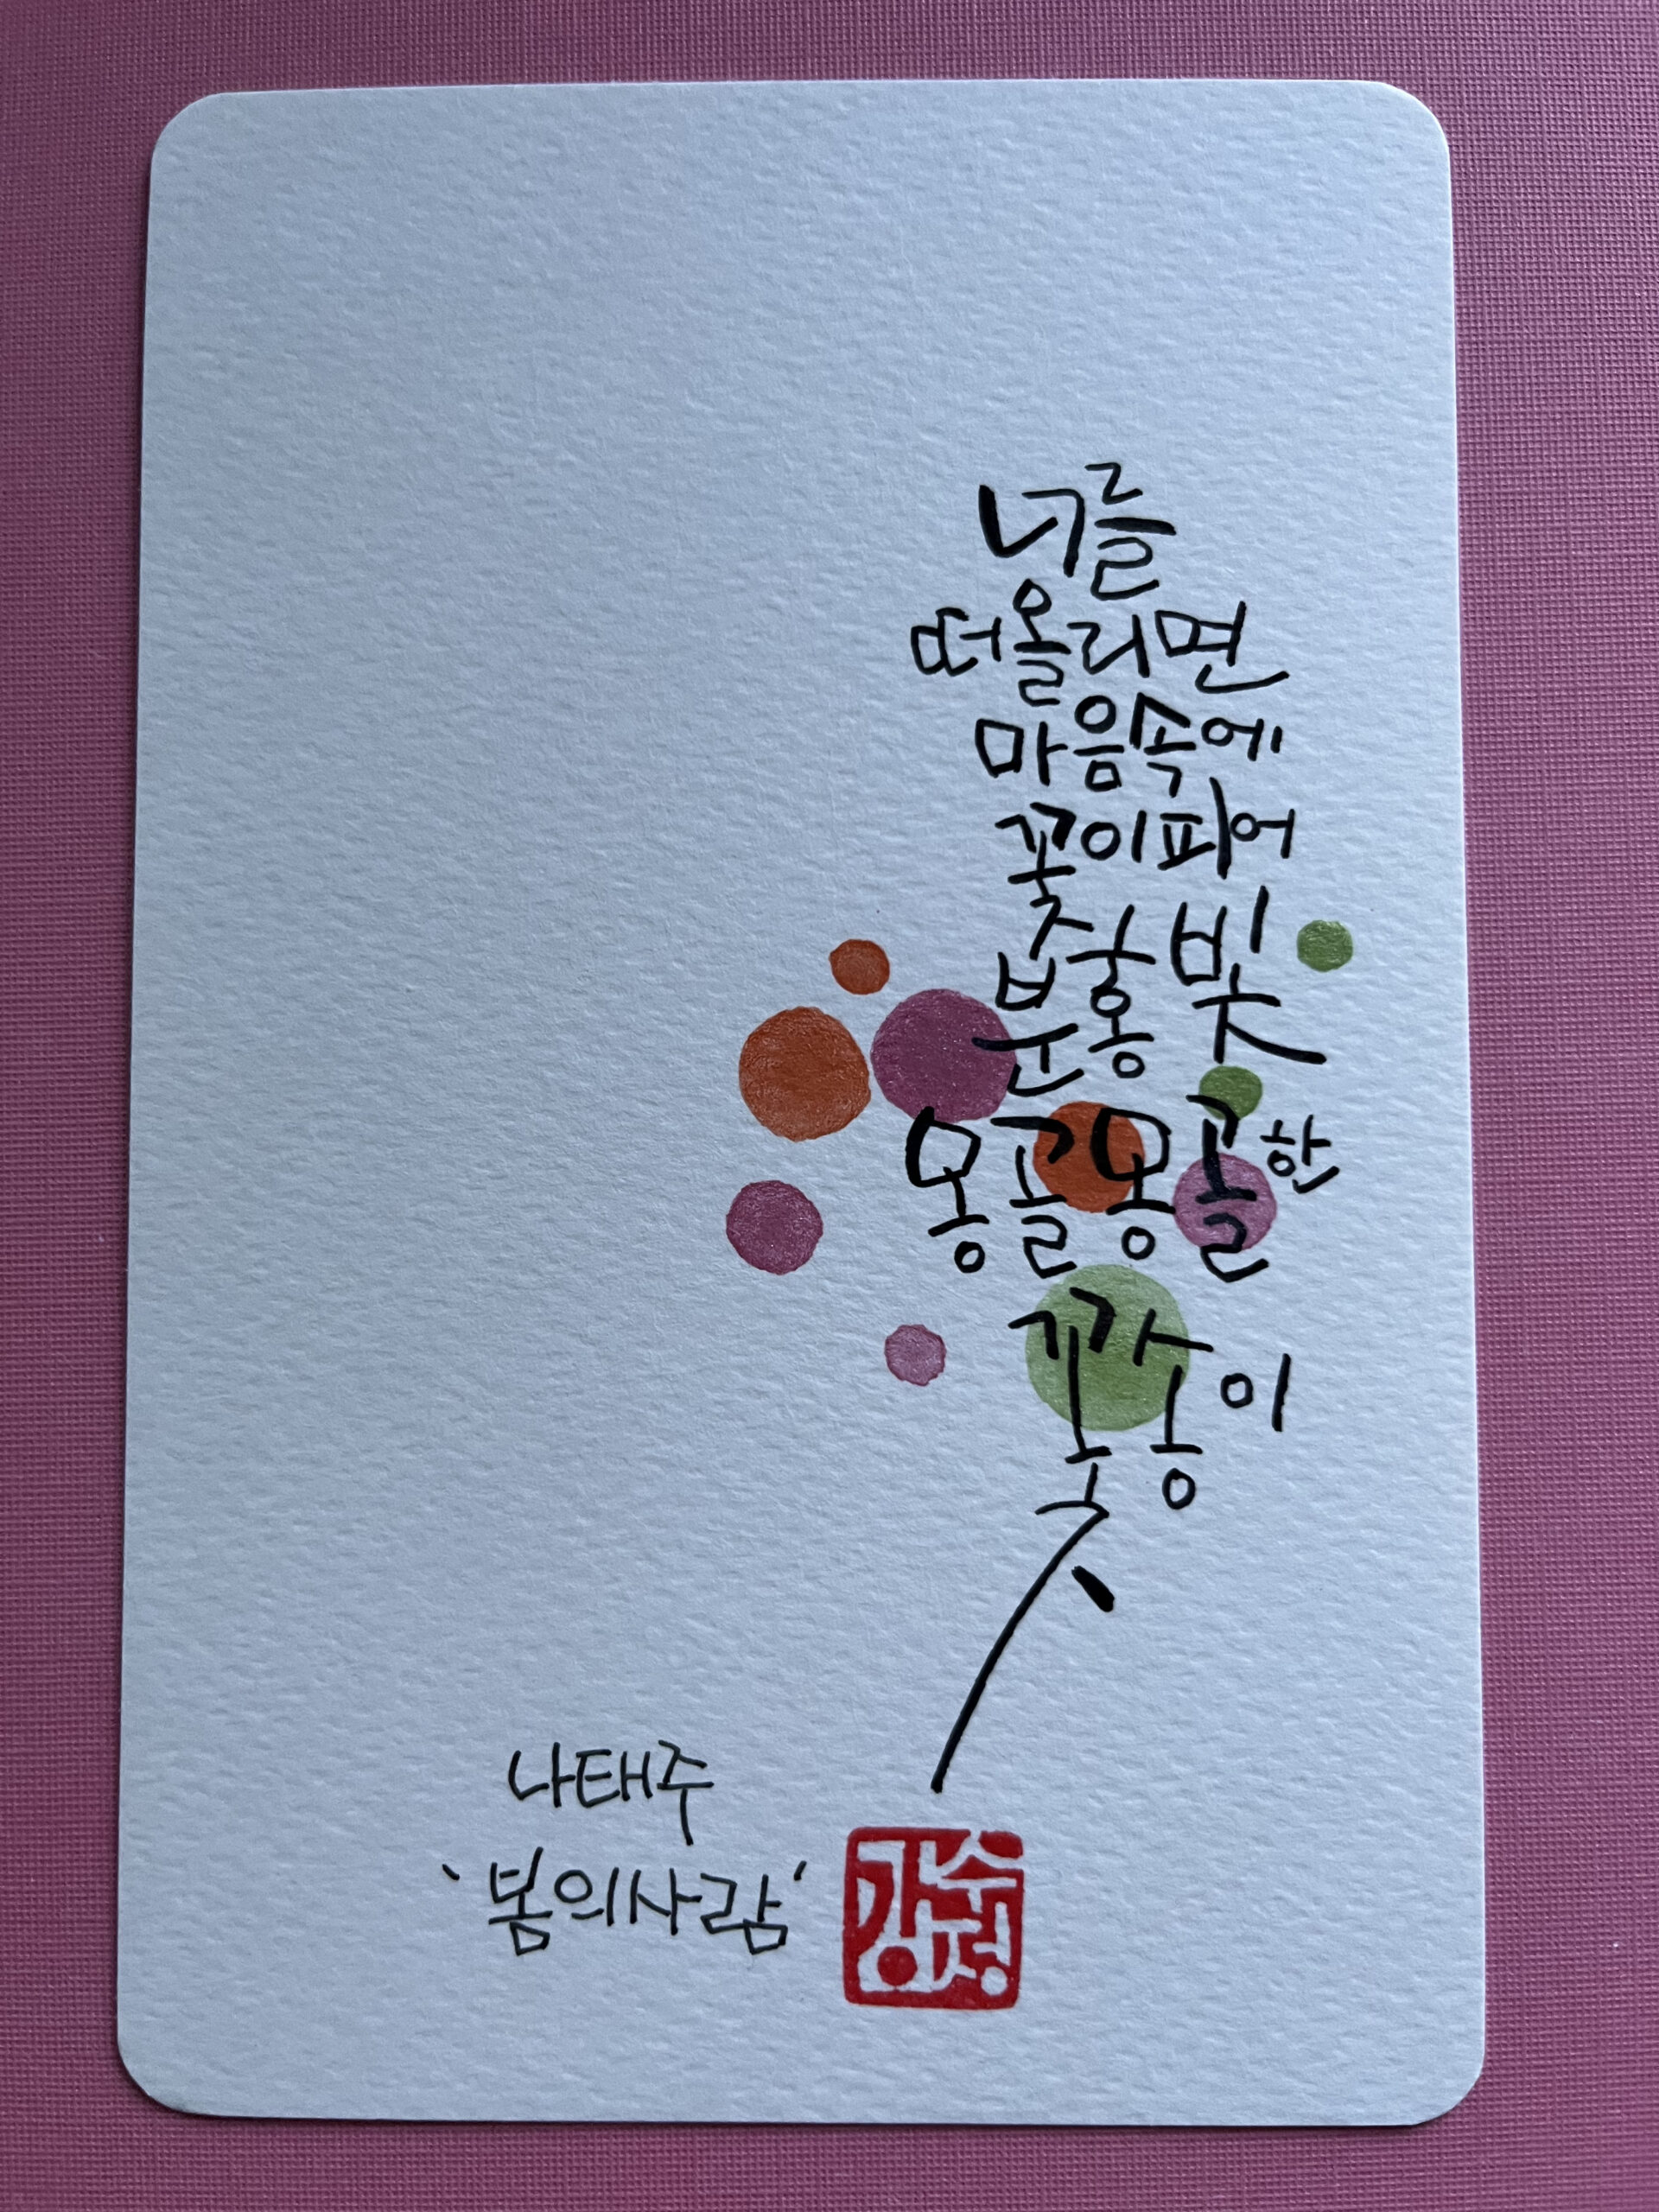 너를
떠올리면
마음속에
꽃이피어
분홍빛
몽골몽골한
꽃송이
나태주
'봄의사람'
강수정